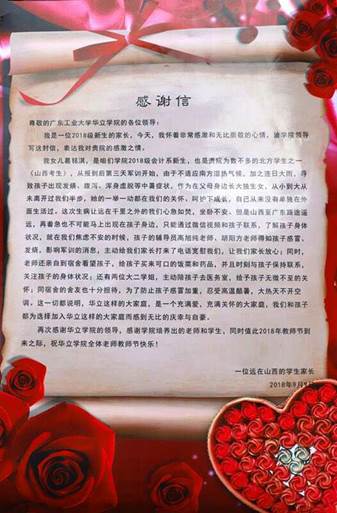 感谢信
尊敬的广东工业大学华立学院的各位领导：
我是一位2018级新生的家长，今天，我怀着非常感激和无比崇敬的心情，给学院领导
写这封信，表达我对贵院的感激之情。
我女儿葛轶淇，是咱们学院2018级会计系新生，也是贵院为数不多的北方学生之一
（山西考生），从报到后第三天军训开始，由于不适应南方湿热气候，加之连日大雨，导
致孩子出现发烧、腹泻、浑身虚脱等中暑症状，作为在父母身边长大独生女，从小到大从
未离开过我们半步，她的一举一动都在我们的关怀、呵护下成长，自己从来没有单独在外
面生活过。这次生病让远在千里之外的我们心急如焚，坐卧不安。但是山西至广东路途遥
远，再着急也不可能马上出现在孩子身边，只能通过微信视频和孩子联系，了解孩子身体
状况，就在我们焦虑不安的时候，孩子的辅导员高旭纯老师、胡阳方老师得知孩子感冒
发烧，影响军训的消息，主动给我们家长打来了电话宽慰我们，让我们家长放心；同时，
老师还亲自到宿舍看望孩子，给孩子买来可口的饭菜和药品，并且时刻与孩子保持联系，
关注孩子的身体状况；还有两位大二学姐，主动陪孩子去医务室，给孩子无微不至的关
怀；同宿舍的舍友也十分担待，为了防止孩子感冒加重，忍受高温酷暑，大热天不开空
调，这一切都说明，华立这样的大家庭，是一个充满爱，充满关怀的大家庭，我们和孩子
都为选择加入华立这样的大家庭而感到无比的庆幸与自豪。
再次感谢华立学院的领导，感谢学院培养出的老师和学生，同时值此2018年教师节到
来之际，祝华立学院全体老师教师节快乐！
一位远在山西的学生家长
2018年9月